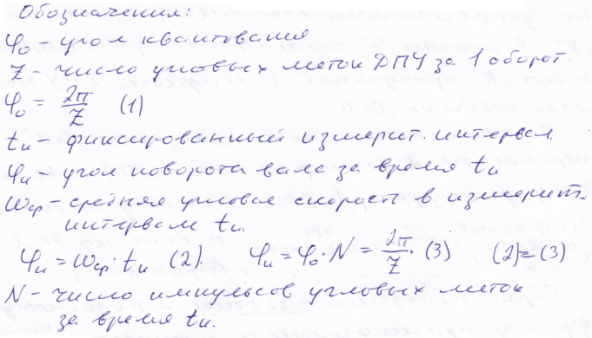 Обозначения:
φ₀ – угол квантования
Z – число угловых меток ДПУ за 1 оборот.
φ₀ = 2π/Z (1)
tи – фиксированный измерит. интервал
φи – угол поворота вала за время tи
ωср – средняя угловая скорость в измерит.
интервале tи.
φи = ωср · tи (2) φи = φ₀ · N = 2π/Z (3) (2) = (3)
N – число импульсов угловых меток
за время tи.